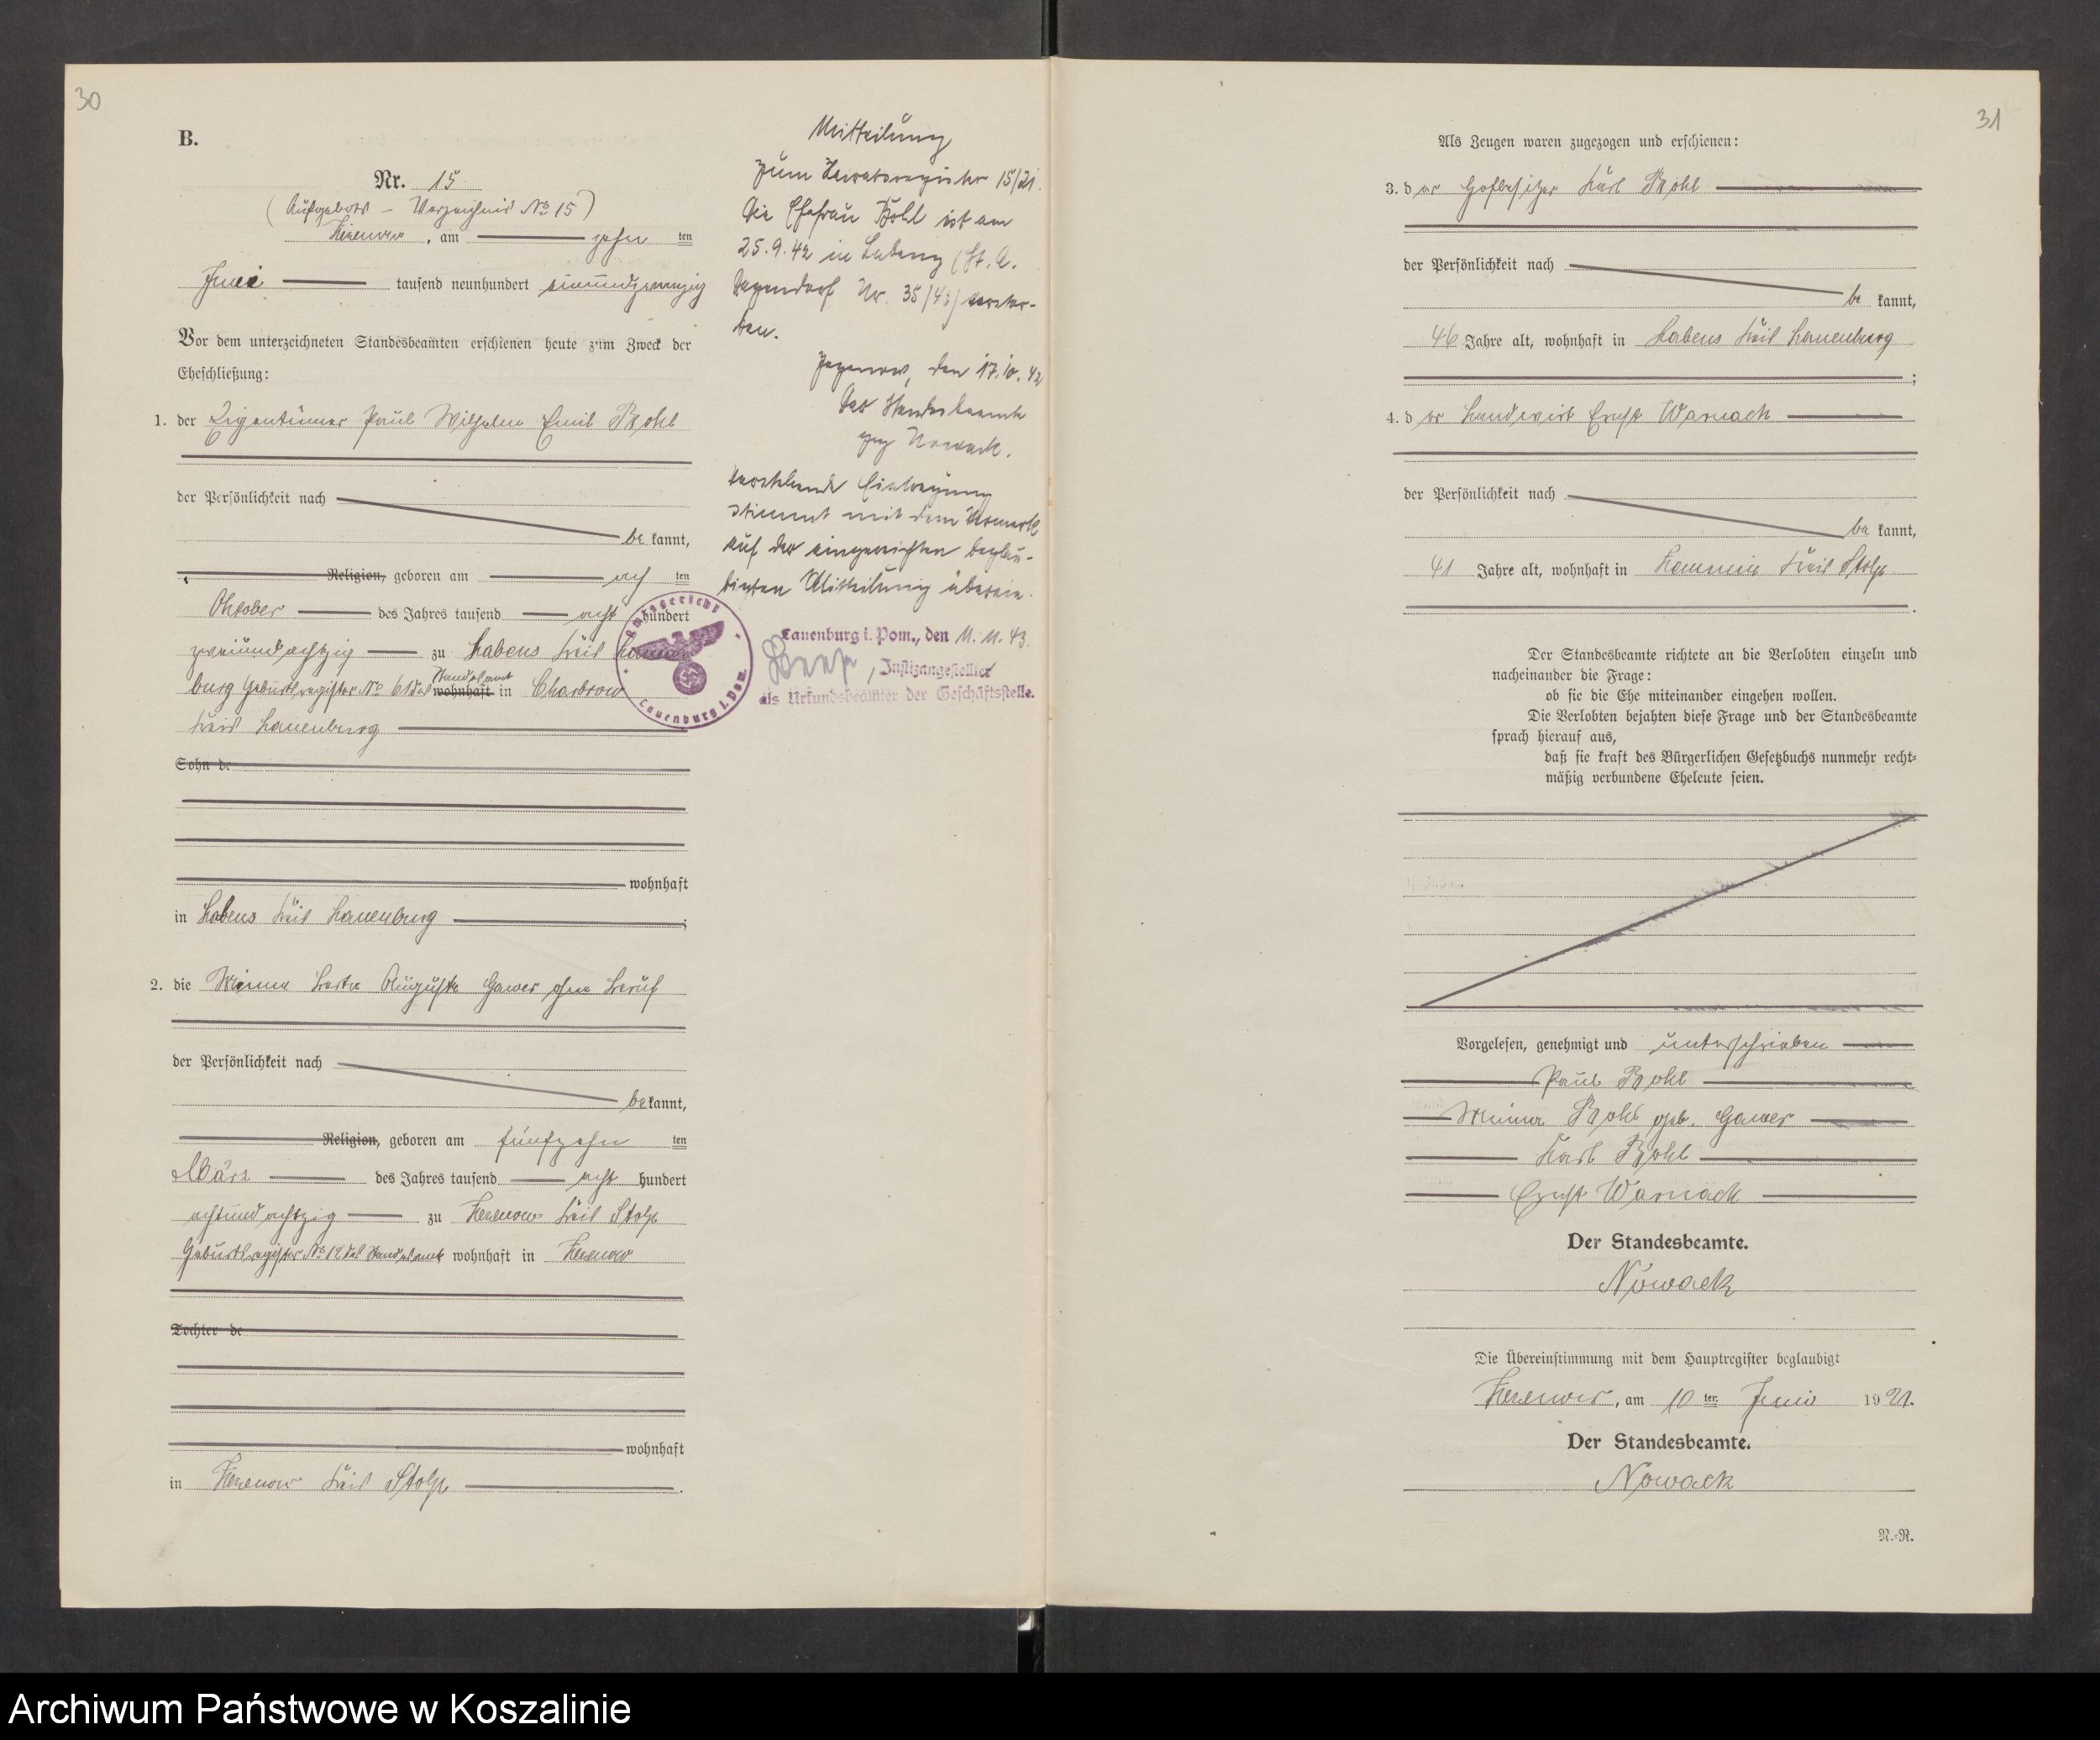 30
B.
Nr. 15
(Aufgebots - Verzeichnis No 15)
, am zehn ten
Juni tausend neunhundert einundzwanzig
Vor dem unterzeichneten Standesbeamten erschienen heute zum Zweck der
Eheschließung:
1. der Eigentümer Paul Wilhelm Emil Bohl
der Persönlichkeit nach
be kannt,
Religion, geboren am ach ten
Oktober des Jahres tausend acht hundert
zweiundachtzig zu Labens Kreis Lauen-
burg Geburtsregister No 61 des Standesamt wohnhaft in Charbrow
Kreis Lauenburg
Sohn de
wohnhaft
in Labens Kreis Lauenburg ;
2. die Minna Berta Auguste Gawer ohne Beruf
der Persönlichkeit nach
be kannt,
Religion, geboren am fünfzehn ten
März des Jahres tausend acht hundert
achtundachtzig zu Kreis Stolp
Geburtsregister No 12 des Standesamt wohnhaft in
Tochter de
wohnhaft
in Kreis Stolp .
Mitteilung
zum Heiratsregister 15/21.
Die Ehefrau Bohl ist am
25.9.42 in Labenz (St. A.
Nr. 35/42) verstor-
ben.
den 17.10.42
Der Standesbeamte
gez Nowack.
Vorstehende Eintragung
stimmt mit dem Vermerk
auf der eingereichten beglau-
bigten Mitteilung überein.
Lauenburg i. Pom., den 11.11.43.
, Justizangestellter
als Urkundsbeamter der Geschäftsstelle.
Amtsgericht
Lauenburg i. Pom.
31
Als Zeugen waren zugezogen und erschienen:
3. d er Hofbesitzer Karl Bohl
der Persönlichkeit nach
be kannt,
46 Jahre alt, wohnhaft in Labens Kreis Lauenburg
;
4. d er Landwirt Ernst Warnack
der Persönlichkeit nach
be kannt,
41 Jahre alt, wohnhaft in Kreis Stolp
.
Der Standesbeamte richtete an die Verlobten einzeln und
nacheinander die Frage:
ob sie die Ehe miteinander eingehen wollen.
Die Verlobten bejahten diese Frage und der Standesbeamte
sprach hierauf aus,
daß sie kraft des Bürgerlichen Gesetzbuchs nunmehr recht-
mäßig verbundene Eheleute seien.
Vorgelesen, genehmigt und unterschrieben
Paul Bohl
Minna Bohl geb. Gawer
Karl Bohl
Ernst Warnack
Der Standesbeamte.
Nowack
Die Übereinstimmung mit dem Hauptregister beglaubigt
, am 10 ten Juni 19 21.
Der Standesbeamte.
Nowack
N.-R.
Archiwum Państwowe w Koszalinie